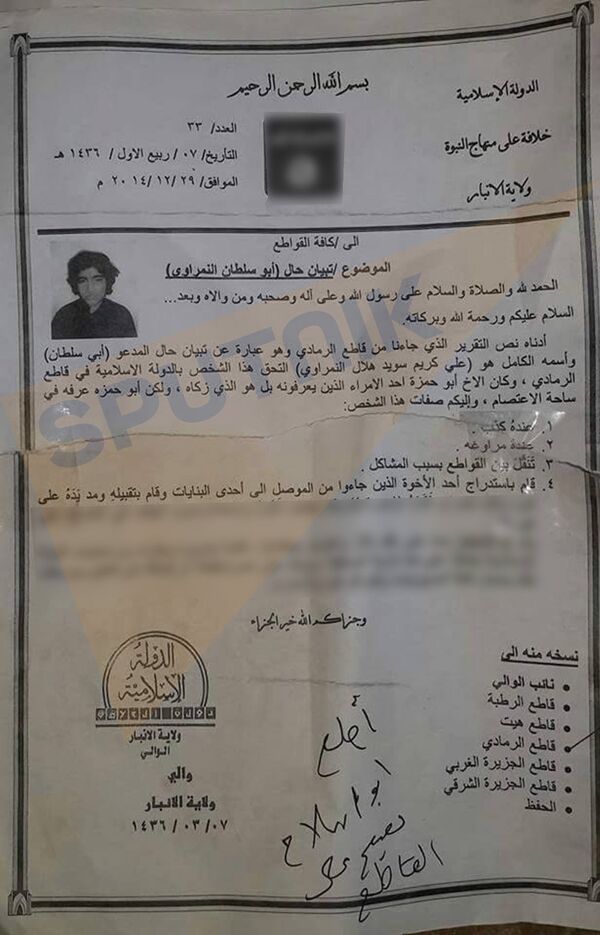 بسم الله الرحمن الرحيم
الدولة الإسلامية
خلافة على منهاج النبوة
ولاية الانبار
العدد/ ٣٣
التأريخ/ ٠٧ / ربيع الاول / ١٤٣٦ هـ
الموافق/ ٢٩ /١٢/ ٢٠١٤ م
الى /كافة القواطع
الموضوع /تبيان حال (أبو سلطان النمراوي)
الحمد لله والصلاة والسلام على رسول الله وعلى آله وصحبه ومن والاه وبعد...
السلام عليكم ورحمة الله وبركاته.
أدناه نص التقرير الذي جاءنا من قاطع الرمادي وهو عبارة عن تبيان حال المدعو (أبي سلطان)
وأسمه الكامل هو (علي كريم سويد هلال النمراوي) التحق هذا الشخص بالدولة الاسلامية في قاطع
الرمادي ، وكان الاخ أبو حمزة احد الامراء الذين يعرفونه بل هو الذي زكاه ، ولكن أبو حمزه عرفه في
ساحة الاعتصام ، وإليكم صفات هذا الشخص:
١. عنده كذب .
٢. عنده مراوغه .
٣. تنقل بين القواطع بسبب المشاكل .
٤. قام باستدراج أحد الأخوة الذين جاءوا من الموصل الى أحدى البنايات وقام بتقبيله ومد يده على
وجزاكم الله خير الجزاء
نسخه منه الى
• نائب الوالي
• قاطع الرطبة
• قاطع هيت
• قاطع الرمادي
• قاطع الجزيرة الغربي
• قاطع الجزيرة الشرقي
• الحفظ
الدولة
الإسلامية
ولاية الانبار
الوالي
والي
ولاية الانبار
١٤٣٦ / ٠٣ / ٠٧
SPUTNIK